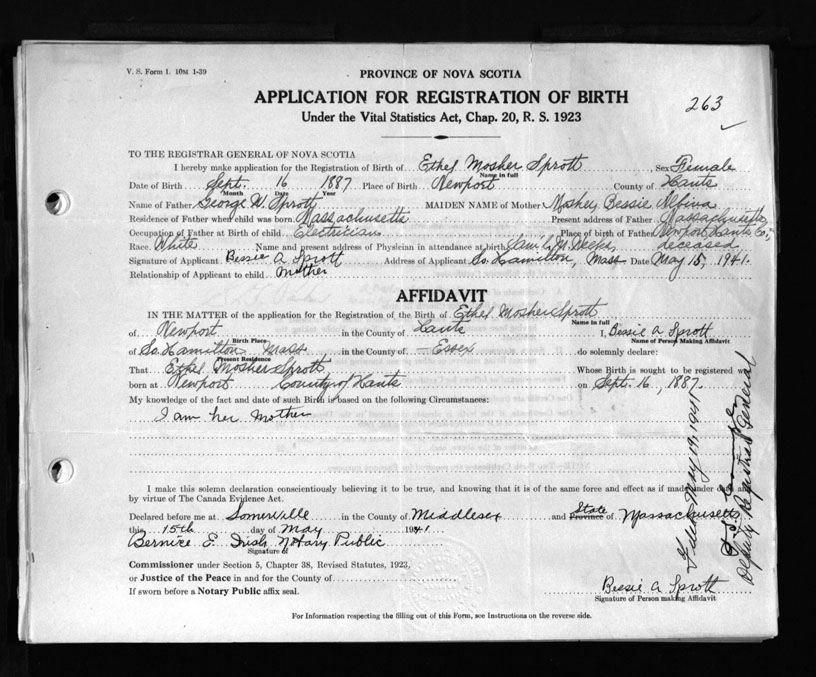 V. S. Form 1. 10M 1-39
PROVINCE OF NOVA SCOTIA
APPLICATION FOR REGISTRATION OF BIRTH
263
Under the Vital Statistics Act, Chap. 20, R. S. 1923
TO THE REGISTRAR GENERAL OF NOVA SCOTIA
I hereby make application for the Registration of Birth of Ethel Mosher Sprott Sex Female
Name in full
Date of Birth Sept. 16 1887 Place of Birth Newport County of Hants
Month Date Year
Name of Father George W. Sprott MAIDEN NAME of Mother Mosher, Bessie Albina
Residence of Father when child was born Massachusetts Present address of Father Massachusetts
Occupation of Father at Birth of child Electrician Place of birth of Father Newport, Hants Co.,
Race White Name and present address of Physician in attendance at birth deceased
Signature of Applicant Bessie A Sprott Address of Applicant So. Hamilton, Mass Date May 15, 1941.
Relationship of Applicant to child Mother
AFFIDAVIT
IN THE MATTER of the application for the Registration of the Birth of Ethel Mosher Sprott
Name in full
of Newport in the County of Hants I, Bessie A Sprott
Birth Place Name of Person Making Affidavit
of So. Hamilton Mass in the County of Essex do solemnly declare:
Present Residence
That Ethel Mosher Sprott Whose Birth is sought to be registered was
born at Newport County of Hants on Sept. 16, 1887.
My knowledge of the fact and date of such Birth is based on the following Circumstances:
I am her Mother
I make this solemn declaration conscientiously believing it to be true, and knowing that it is of the same force and effect as if made under oath and
by virtue of The Canada Evidence Act.
Declared before me at Somerville in the County of Middlesex and State Province of Massachusetts
this 15th day of May 1941
Bernice E Irish Notary Public
Signature of
Commissioner under Section 5, Chapter 38, Revised Statutes, 1923,
or Justice of the Peace in and for the County of
If sworn before a Notary Public affix seal.
Bessie A Sprott
Signature of Person making Affidavit
For Information respecting the filling out of this Form, see Instructions on the reverse side.
Filed May 19, 1941
Deputy Registrar General